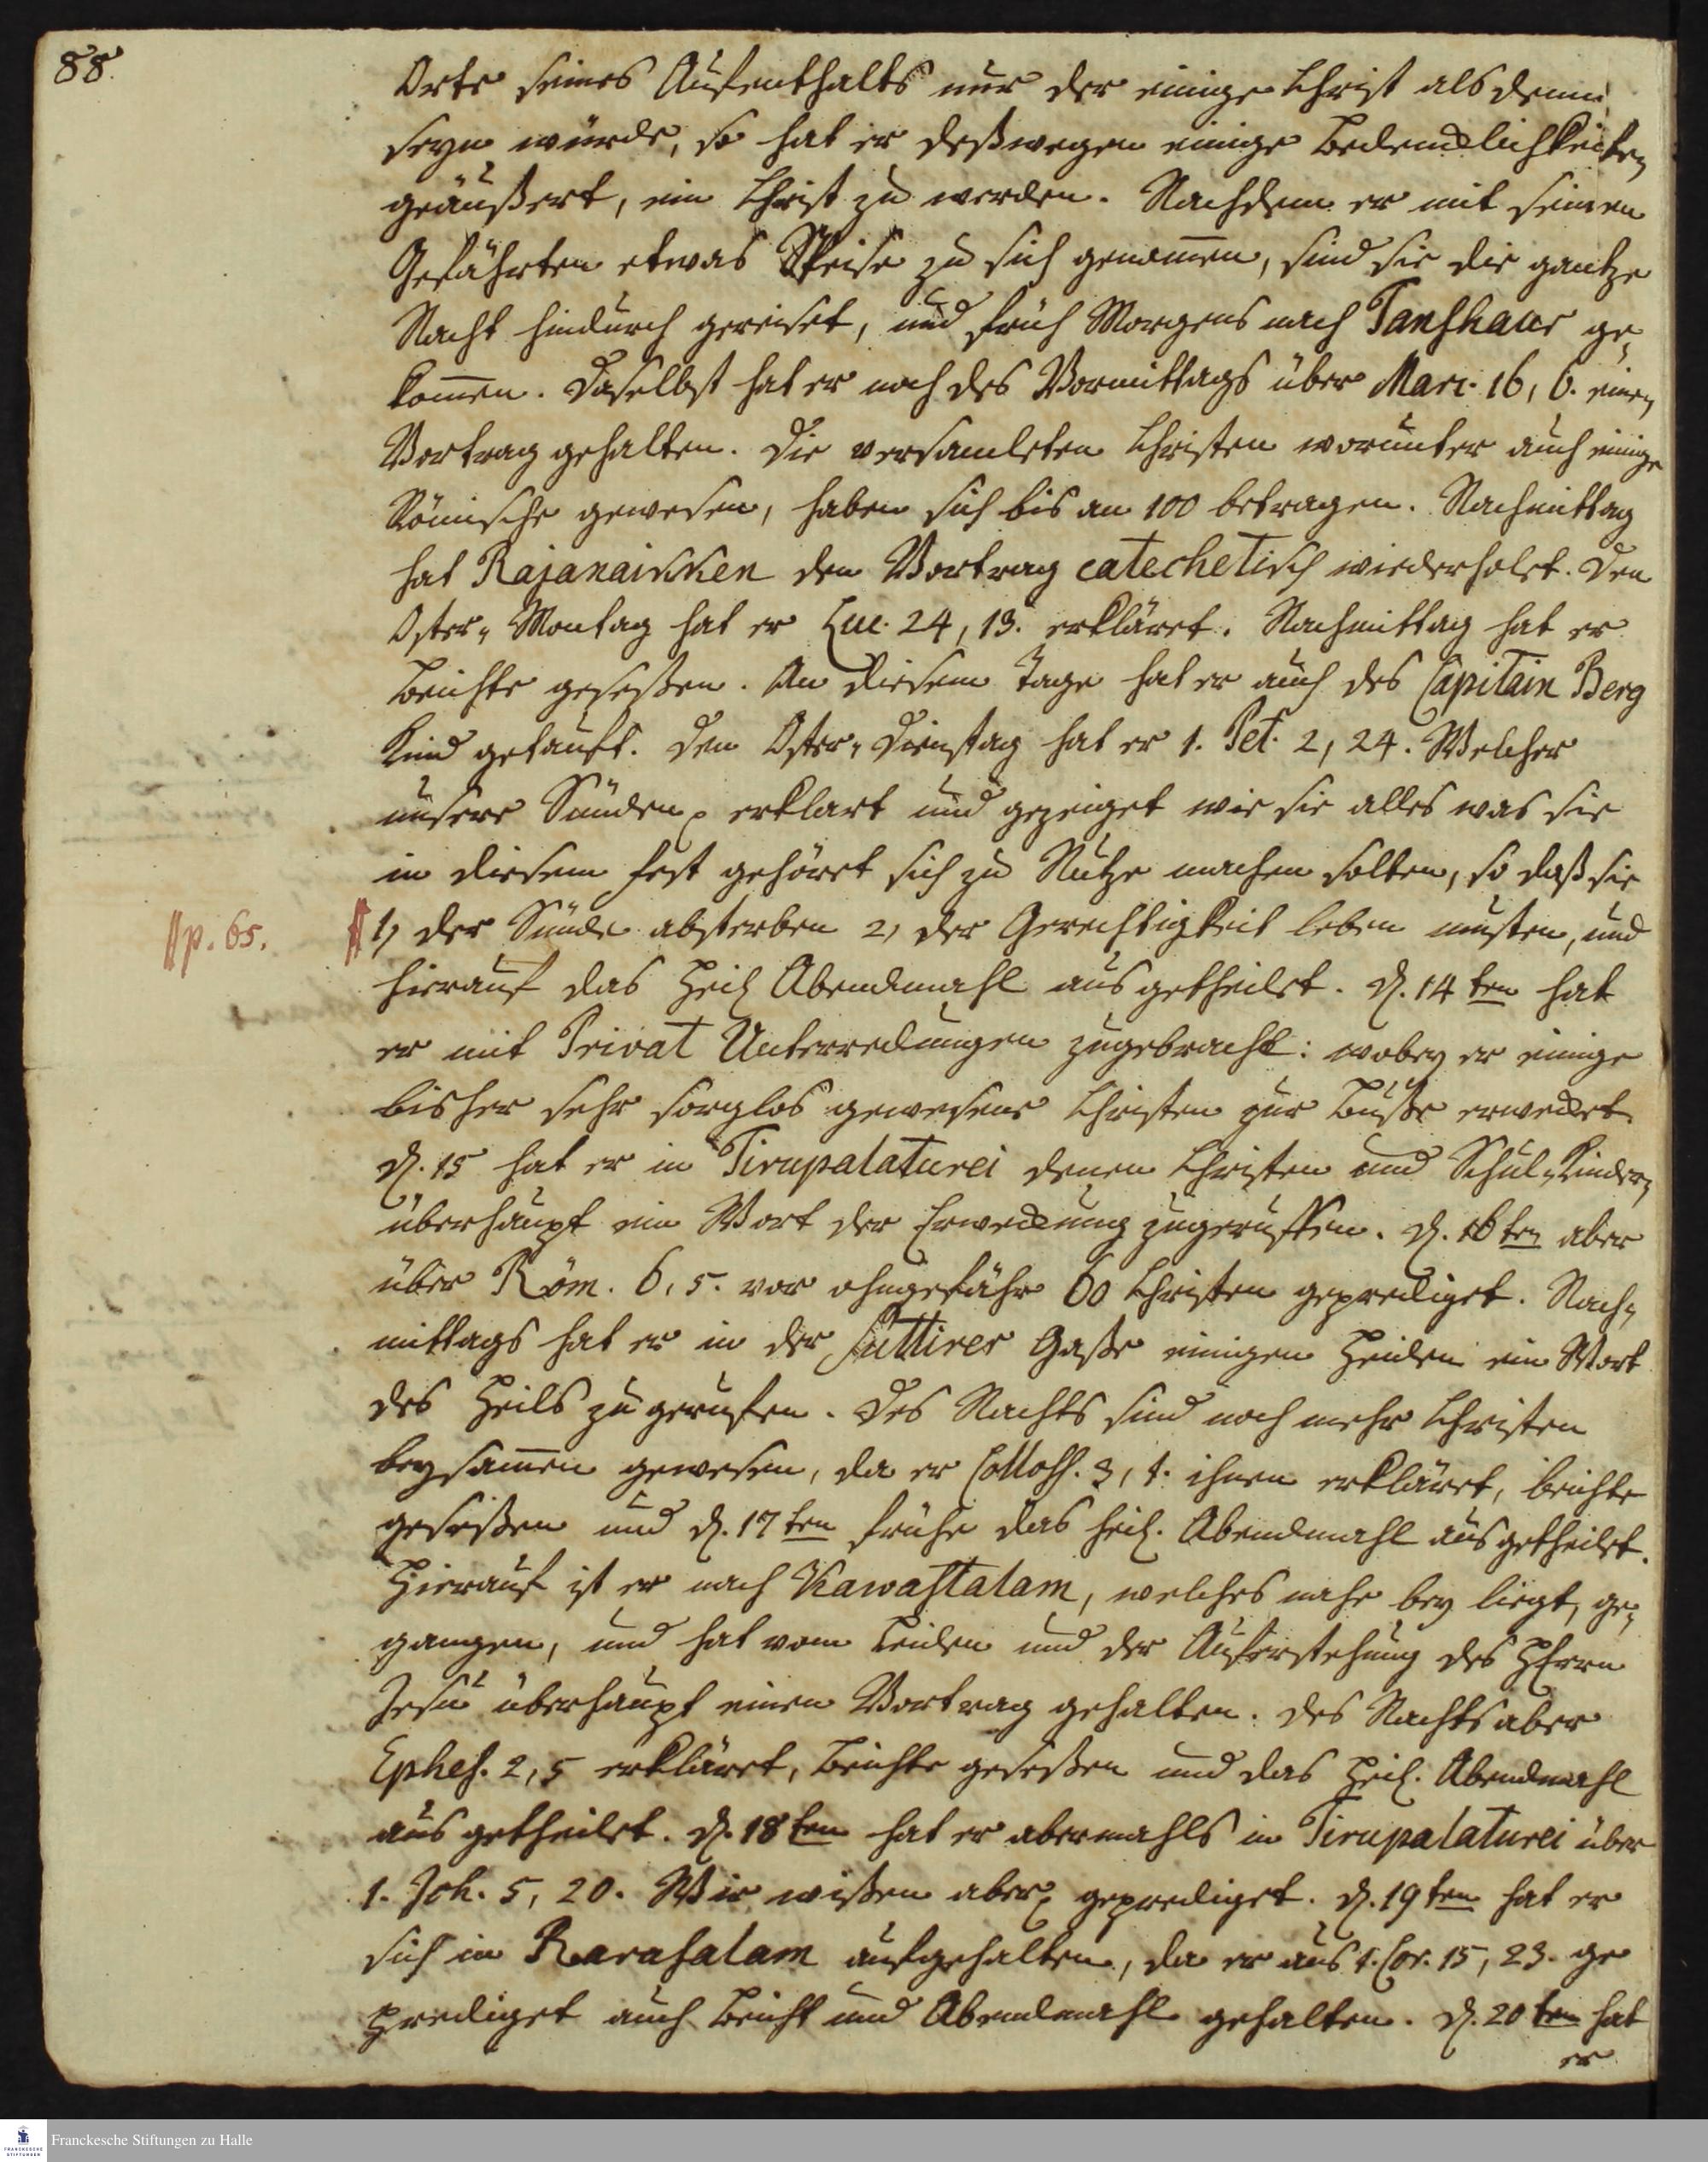 88.
Orte seines Aufenthalts nur der einige Christ alsdenn
seyn würde, so hat er deßwegen einige Bedencklichkeiten
geäußert, ein Christ zu werden. Nachdem er mit seinen
Gefährten etwas Speise zu sich genom̄en, sind sie die gantze
Nacht hindurch gereiset, und früh Morgens nach Tanshaur ge-
kom̄en. Daselbst hat er noch des Vormittags über Marc. 16, 6. einen
Vortrag gehalten. Die versamleten Christen worunter auch einige
Römische gewesen, haben sich bis an 100 betragen. Nachmittag
hat Rajanaikken den Vortrag catechetisch wiederholet. Den
Oster-Montag hat er Luc. 24, 13. erkläret. Nachmittag hat er
Beichte geseßen. An diesem Tage hat er auch des Capitain Berg
Kind getauft. Den Oster-Dienstag hat er 1. Pet. 2, 24. Welcher
unsere Sünden erklart und gezeiget wie sie alles was sie
in diesem Fest gehöret sich zu Nutze machen solten, so daß sie
||p. 65. || 1, der Sünde absterben 2, der Gerechtigkeit leben musten, und
hierauf das Heil Abendmahl ausgetheilet. d. 14ten hat
er mit Privat Unterredungen zugebracht: wobey er einige
bisher sehr sorglos gewesene Christen zur Buße erwecket.
d. 15 hat er in Tirupalaturei denen Christen und Schul-Kindern
überhaupt ein Wort der Erweckung zugeruffen. d. 16ten aber
über Röm. 6, 5. vor ohngefähr 60 Christen geprediget. Nach-
mittags hat er in der Suttirer Gaße einigen Heiden ein Wort
des Heils zugerufen. Des Nachts sind noch mehr Christen
beysam̄en gewesen, da er Colloss. 3, 1. ihnen erkläret, Beichte
geseßen und d. 17ten frühe das heil. Abendmahl ausgetheilet.
Hierauf ist er nach Kawastalam, welches nahe bey liegt, ge-
gangen, und hat vom Leiden und der Auferstehung des HErrn
Jesu überhaupt einen Vortrag gehalten. Des Nachts aber
Ephes. 2, 5 erkläret, Beichte geseßen und das Heil. Abendmahl
ausgetheilet. d. 18ten hat er abermahls in Tirupalaturei über
1. Joh. 5, 20. Wir wißen aber geprediget. d. 19ten hat er
sich in Rarasalam aufgehalten, da er aus 1. Cor. 15, 23. ge
prediget auch Beicht und Abendmahl gehalten. d. 20ten hat
er
Franckesche Stiftungen zu Halle